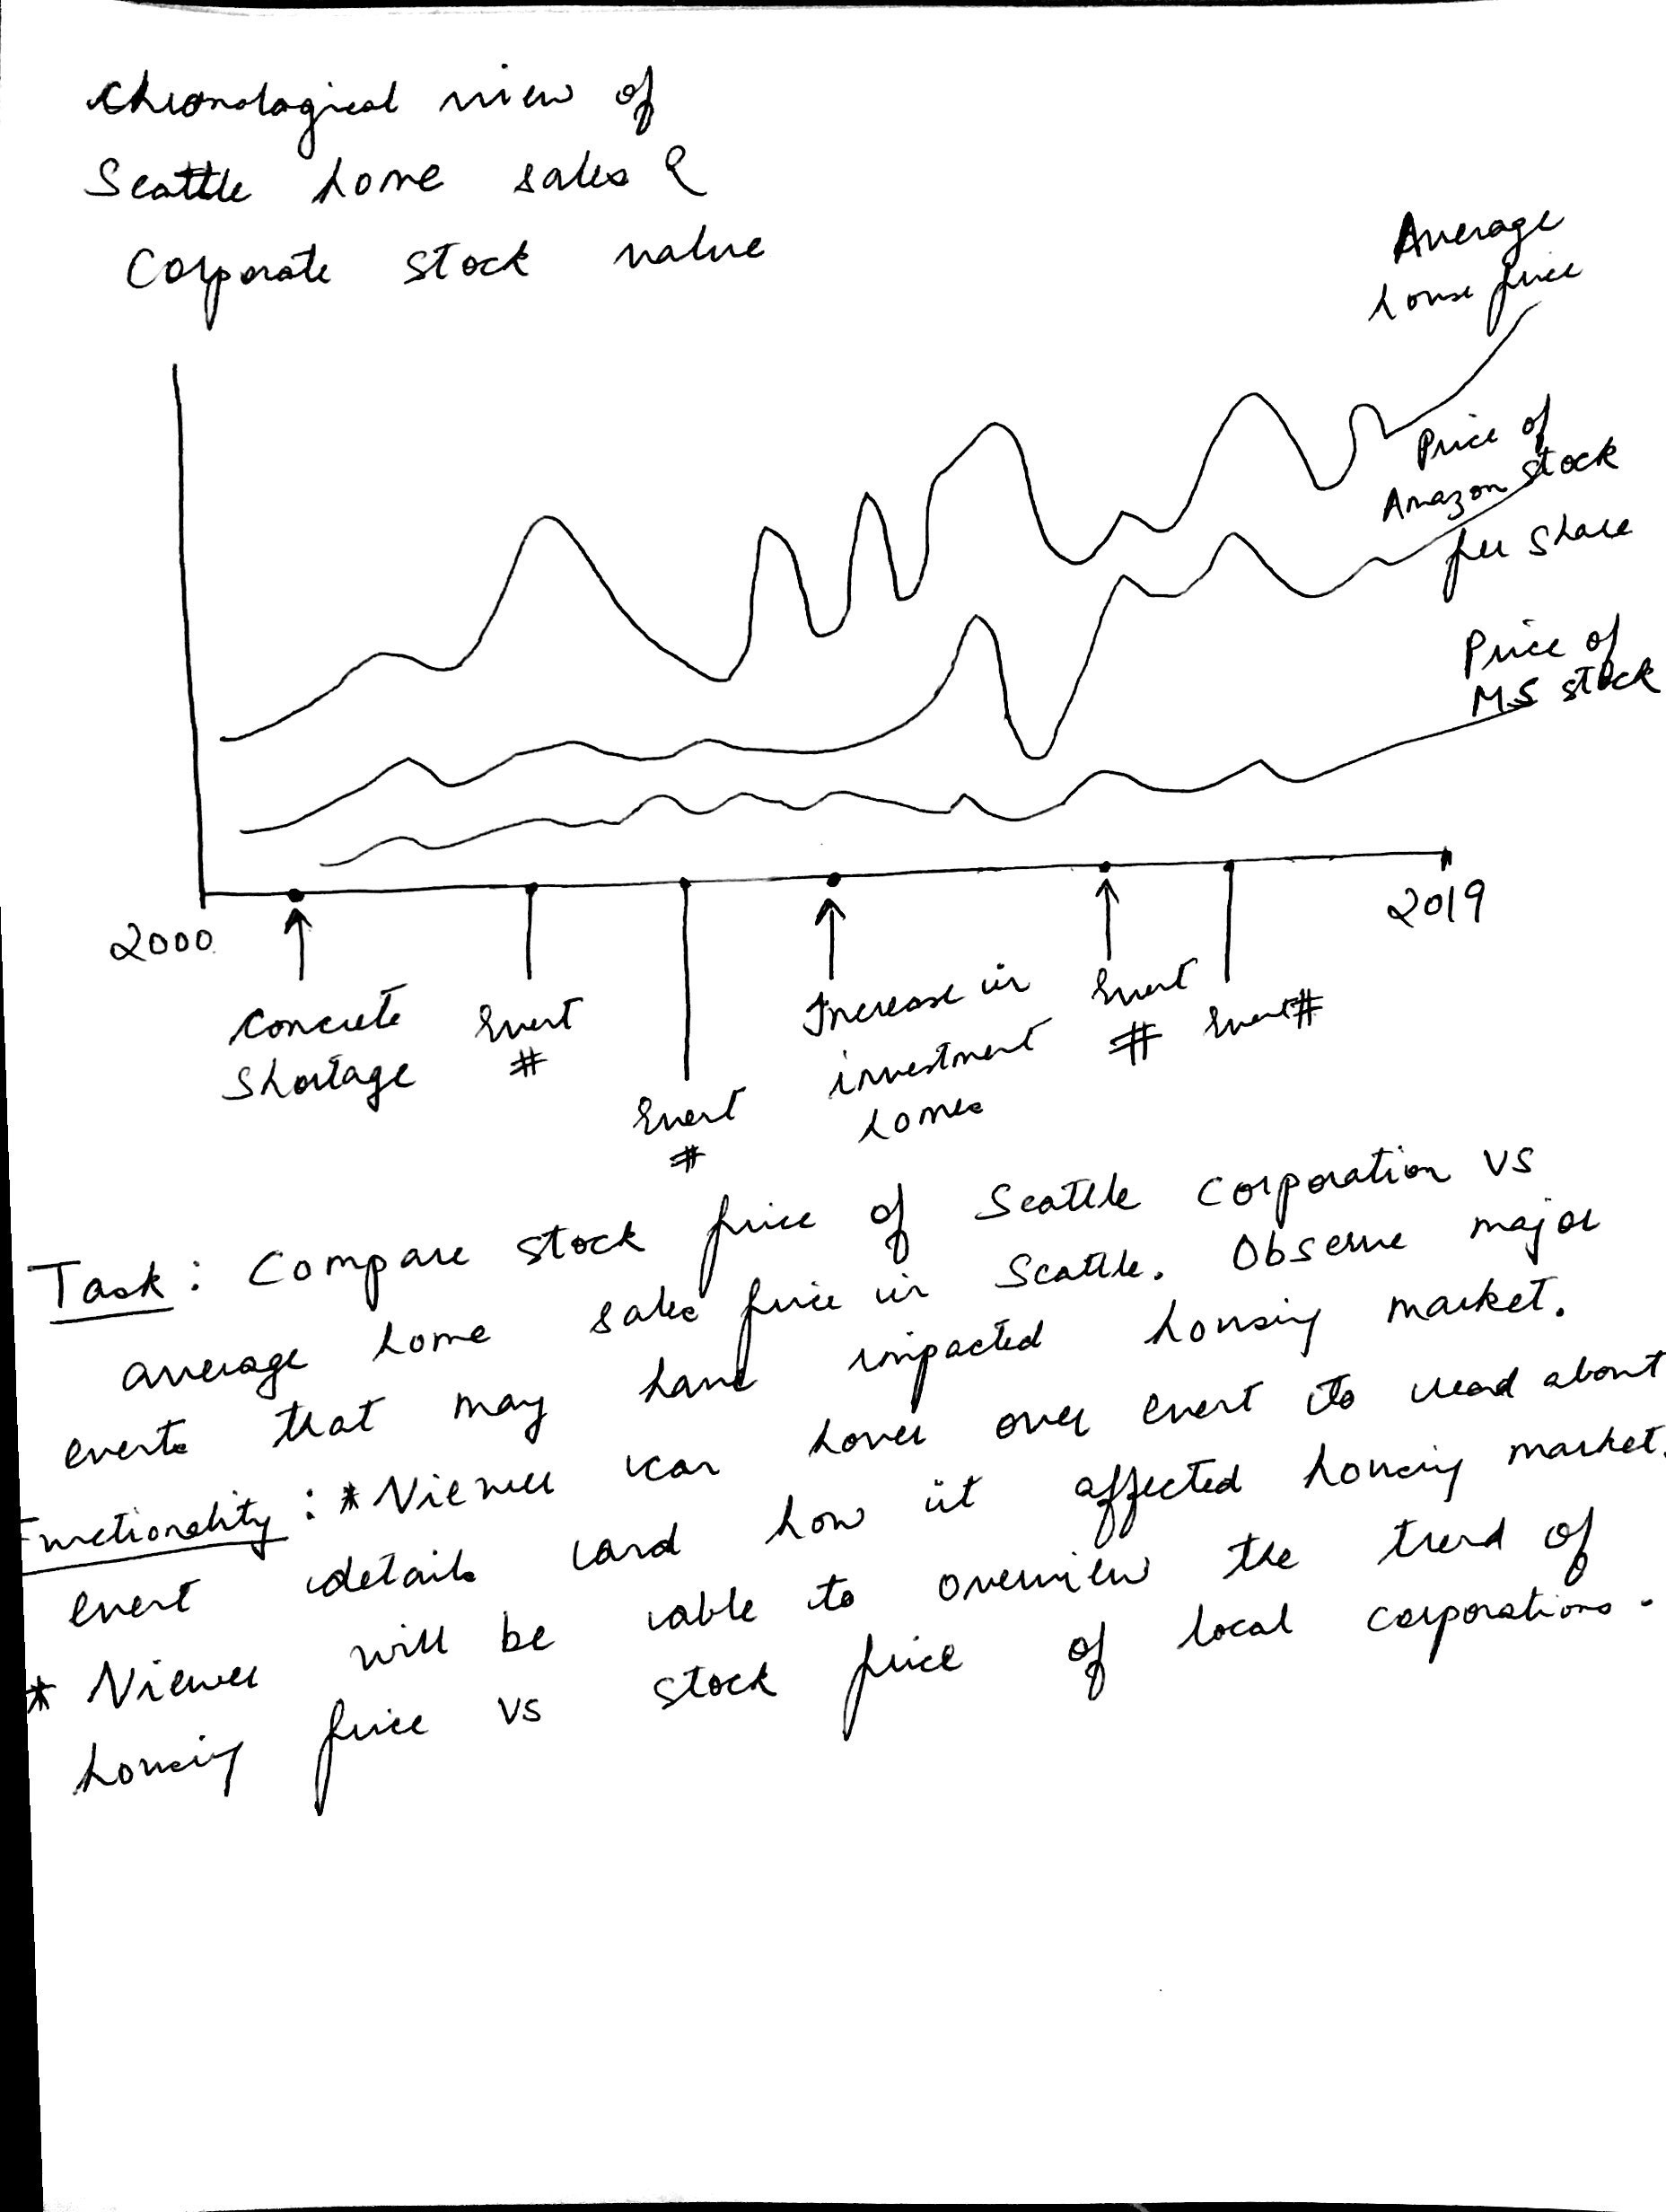 Chronological view of
Seattle home sales &
Corporate stock value
Average
house price
Price of
Amazon stock
per share
Price of
MS stock
2000
2019
Concrete
Shortage
Event
#
Event
#
Increase in
investment
homes
Event
#
Event #
Task: Compare stock price of Seattle corporation vs
average home sales price in Seattle. Observe major
events that may have impacted housing market.
Functionality: * Viewer can hover over event to read about
event details and how it affected housing market.
* Viewer will be able to overview the trend of
housing price vs stock price of local corporations.